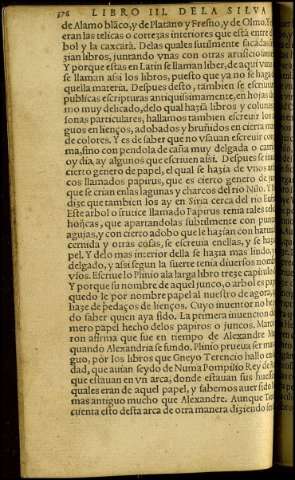 376 LIBRO III. DE LA SILVA
de Alamo blãco, y de Platano y Fresno, y de Olmo. Y
eran las telicas o cortezas interiores que està entre
bol y la caxcara. Delas quales sutilmente sacadas
zian libros, juntando vnas con otras artificio
Y porque estas en Latin se llaman liber, de aqui vin
se llaman assi los libros, puesto que ya no se hag
quella materia. Despues desto, tambien se escriui
publicas escripturas antiquissimamente, en hojas
mo muy delicado, delo qual haziã libros y colunas
sonas particulares, hallamos tambien escreuir los
guos en lienços, adobados y bruñidos en cierta m
de colores. Y es de saber que no vsauan escreuir con
ma, sino con pendola de caña muy delgada o car
oy dia, ay algunos que escriuen assi. Despues se inu
cierto genero de papel, el qual se hazia de vnos
cos llamados papirus, que es cierto genero de
que se crian en las lagunas y charcos del rio Nilo. Y
dize que tambien los ay en Siria cerca del rio Euf
Este arbol o frutice llamado Papirus tenia tales tel
hojicas, que apartandolas subtilmente con punt
agujas, y con cierto adobo que le hazian con harina
cernida y otras cosas, se escreuia en ellas, y se haz
pel. Y delo mas interior della se hazia mas lindo, y
delgado, y assi segun la suerte tenia diuersos nom
vios. Escriue lo Plinio ala larga libro treze capitulo
Y porque su nombre de aquel junco, o arbol es pap
quedo le por nombre papel al nuestro de agora,
haze de pedaços de lienços. Cuyo inuentor no he
do saber quien aya sido. La primera inuencion d
mero papel hecho delos papiros o juncos, Marc
ron afirma que fue en tiempo de Alexandre M
quando Alexandria se fundo. Plinio prueua ser mas
guo, por los libros que Gneyo Terencio hallo en
dad, que auian seydo de Numa Pompilio Rey de
que estauan en vn arca, donde estauan sus hues
quales eran de aquel papel, y sabemos auer sido
mas antiguo mucho que Alexandre. Aunque
cuenta esto desta arca de otra manera diziendo